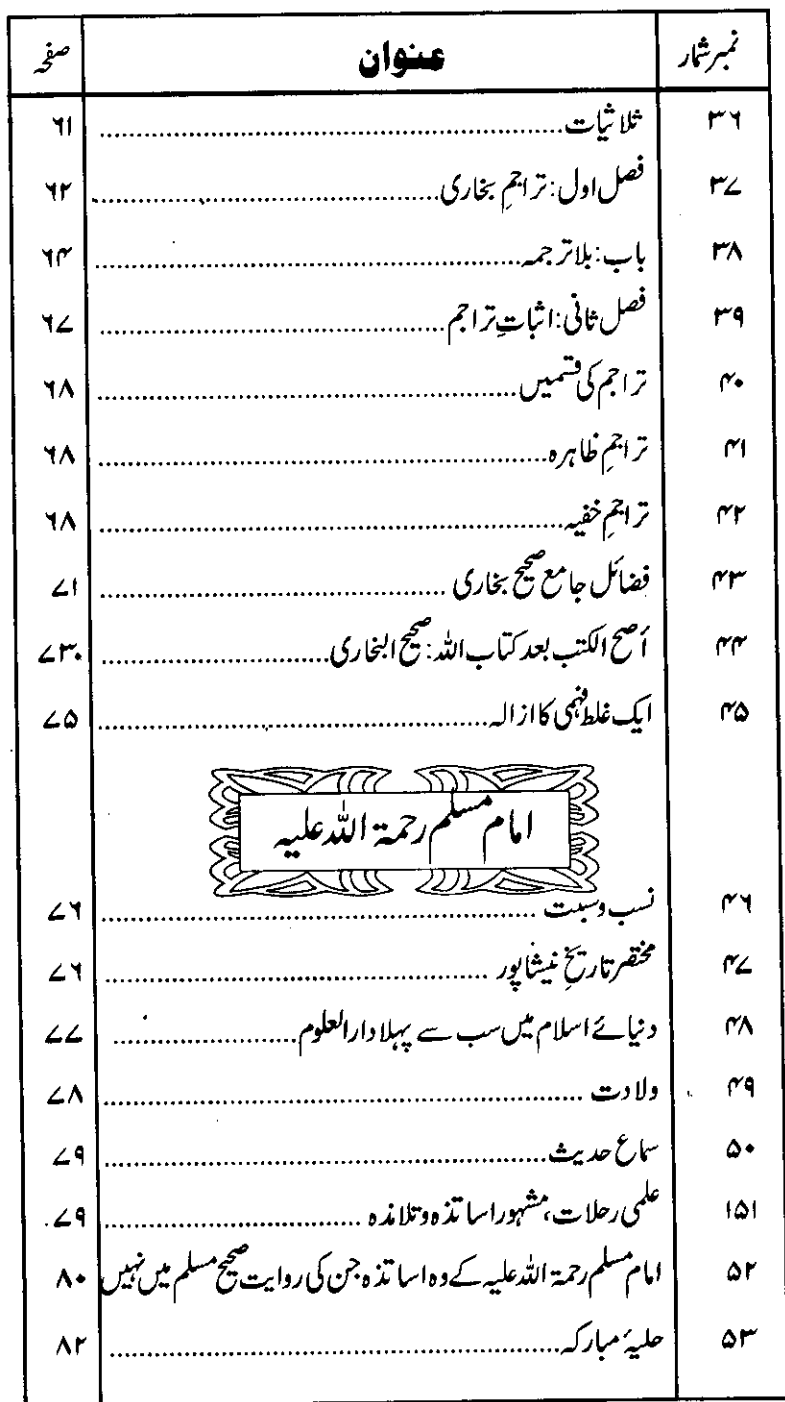 نمبر شمار عنوان صفحہ
۳۶ ثلاثیات ........ ۶۱
۳۷ فصل اول: تراجمِ بخاری ........ ۶۲
۳۸ باب: بلا ترجمہ ........ ۶۴
۳۹ فصل ثانی: اثباتِ تراجم ........ ۶۷
۴۰ تراجم کی قسمیں ........ ۶۸
۴۱ تراجمِ ظاہرہ ........ ۶۸
۴۲ تراجمِ خفیہ ........ ۶۸
۴۳ فضائل جامع صحیح بخاری ........ ۷۱
۴۴ أصح الکتب بعد کتاب اللہ: صحیح البخاری ........ ۷۳
۴۵ ایک غلط فہمی کا ازالہ ........ ۷۵
امام مسلم رحمۃ اللہ علیہ
۴۶ نسب وسبت ........ ۷۶
۴۷ مختصر تاریخِ نیشاپور ........ ۷۶
۴۸ دنیائے اسلام میں سب سے پہلا دارالعلوم ........ ۷۷
۴۹ ولادت ........ ۷۸
۵۰ سماع حدیث ........ ۷۹
۱۵۱ علمی رحلات، مشہور اساتذہ وتلامذہ ........ ۷۹
۵۲ امام مسلم رحمۃ اللہ علیہ کے وہ اساتذہ جن کی روایت صحیح مسلم میں نہیں ۸۰
۵۳ حلیۂ مبارکہ ........ ۸۲